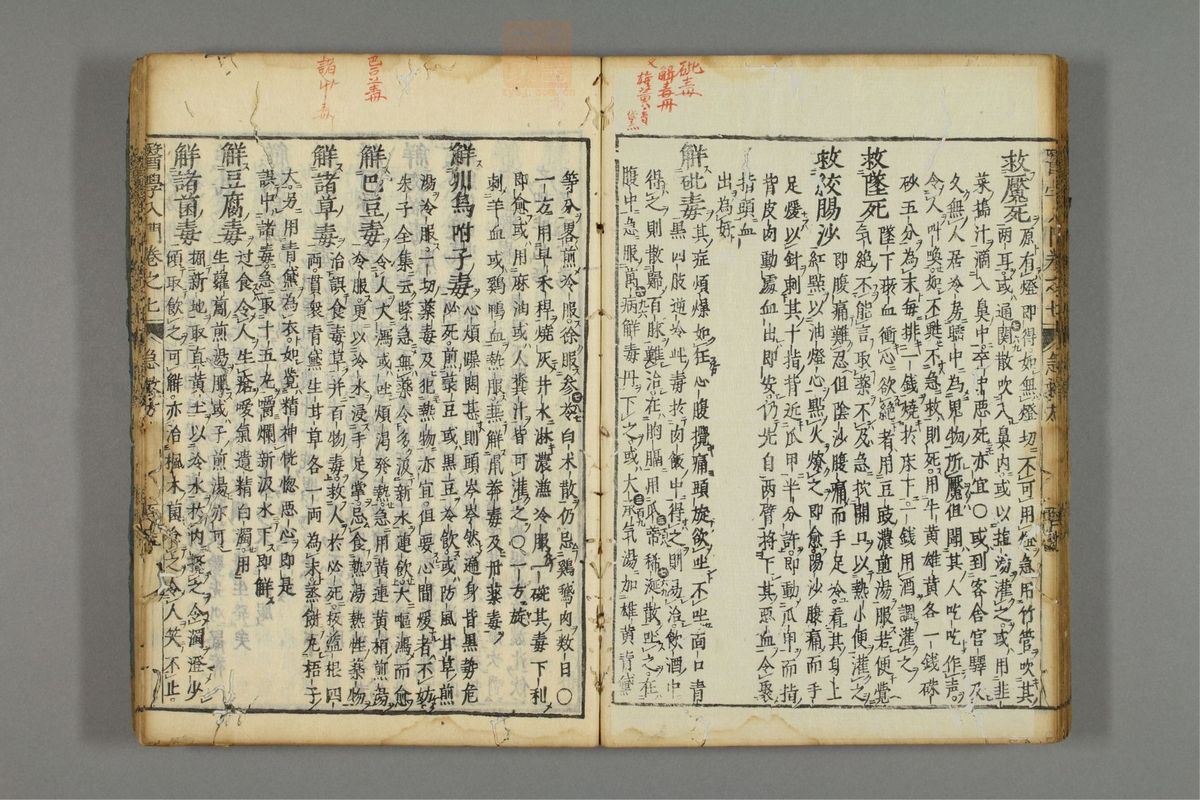 砒毒
解毒丹
雄黄青黛
救魘死原有燈即得如無燈切不可用燈急用竹管吹其
兩耳或通関散吹入鼻内或以塩湯灌之或用韭
菜搗汁滴入鼻中卒中悪死亦宜○或到客舎官驛及
久無人居冷房驛中為鬼物所魘但聞其人吃吃作声
令人叫喚如不甦不急救則死用牛黄雄黄各一錢硃
砂五分為末毎挑一錢焼於床下一錢用酒調灌之
救墜死墜下瘀血衝心欲絶者用豆豉濃煎湯服若便覺
氣絶不能言取藥不及急扻開口以熱小便灌之
救絞腸沙即腹痛難忍但陰沙腹痛而手足冷看其身上
紅點以油燈心點火燎之即愈陽沙腹痛而手
足煖以針刺其十指背近爪甲半分許即動爪甲而指
背皮肉動處血出即安仍先自兩臂捋下其悪血令聚
指頭血
出為好
解砒毒其症煩燥如狂心腹攪痛頭旋欲吐不吐面口青
黒四肢逆冷此毒於肉飯中得之則易治飲酒中
得之則散歸百脉難治在胸膈用瓜蒂稀涎散吐之在
腹中急服萬病解毒丹下之或大承氣湯加雄黄青黛
巴豆毒
諸艸毒
等分畧煎冷服徐服参苓白朮散仍忌鶏鵞肉数日○
一方用早禾稈焼灰井水淋濃漁冷服一碗其毒下利
即愈或用麻油或人糞汁皆可灌之○一方旋
刺羊血或鶏鴨血熱服兼解鼠莽毒及丹藥毒
解川烏附子毒心煩躁悶甚則頭岑岑然遍身皆黒勢危
必死煎菉豆或黒豆冷飲或防風甘草煎
湯冷服一切薬毒及犯熱物亦宜但要心間煖者不妨
朱子全集云際急無藥令多汲新水連飲大嘔瀉而愈
解巴豆毒令人大瀉或吐煩渇発熱急用黄連黄栢煎湯
冷服更以冷水浸手足掌忌食熱湯熱性藥物
解諸草毒治誤食毒草并百物毒救人於必死板藍根四
兩貫衆青黛生甘草各一兩為末蒸餅丸梧子
大另用青黛為衣如覺精神恍惚悪心即是
誤中諸毒急取十五丸嚼爛新汲水下即鮮
解豆腐毒过食令人生瘡噯氣遺精白濁用
生蘿葡煎湯服或子煎湯亦可
解諸菌毒掘新地取真黄土以冷水於内攪之令濁澄少
頃取飲之可解亦治楓木菌食之令人笑不止
醫學入門　卷之七　急救方